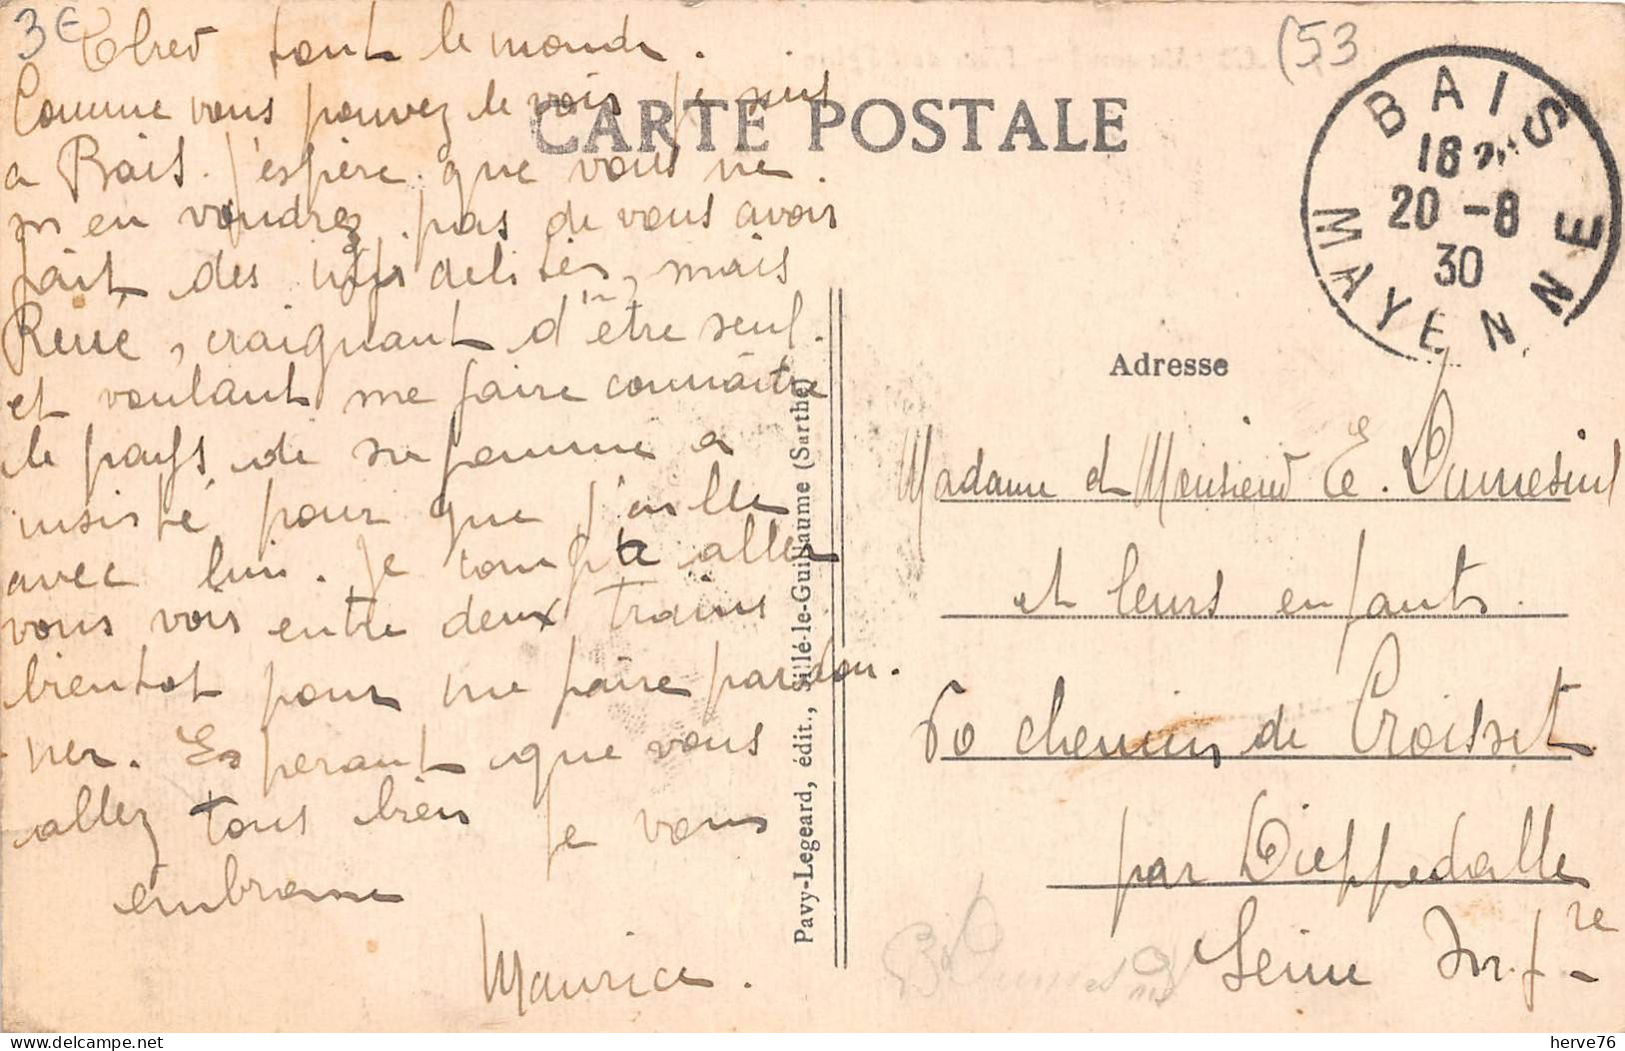 3€
Cher tout le monde.
(53
Comme vous pouvez le voir je suis
CARTE POSTALE
a Bais. J'espère que vous ne
m'en voudrez pas de vous avoir
fait des infidelités, mais
René, craignant d'être seul.
et voulant me faire connaître
le pays de sa femme a
insisté pour que j'aille
avec lui. Je compte aller
vous voir entre deux trains
bientot pour me faire pardon.
ner. Esperant que vous
allez tous bien je vous
embrasse
Maurice.
Pavy-Legeard, édit., Sillé-le-Guillaume (Sarthe)
BAIS
18
20 -8
30
MAYENNE
Adresse
Madame et Monsieur E. Dumesnil
et leurs enfants.
60 chemin de Croisset
par Dieppedalle
Seine Inf.re
herve76